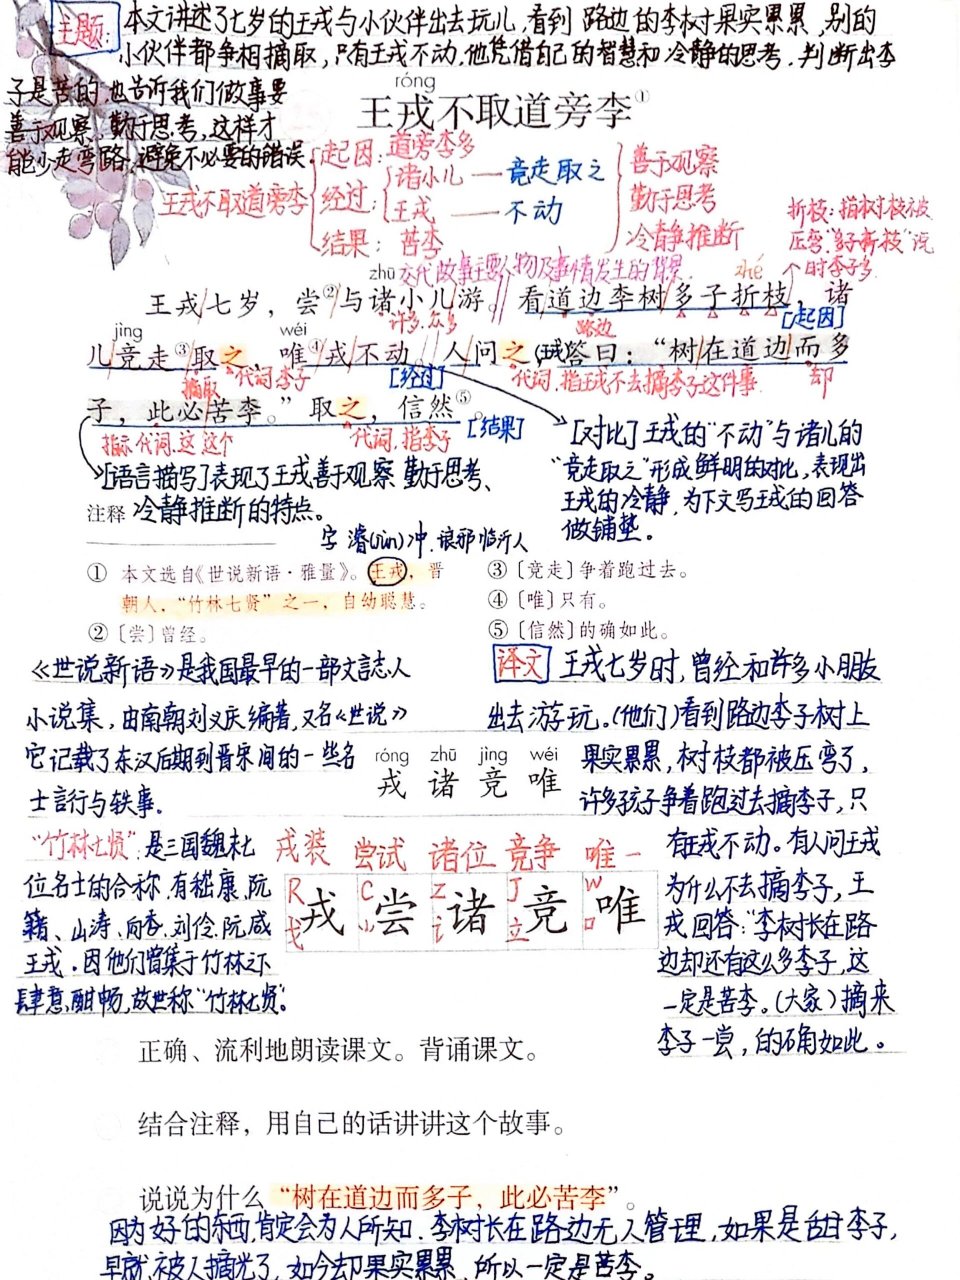 主题:本文讲述了七岁的王戎与小伙伴出去玩儿,看到路边的李树果实累累,别的
小伙伴都争相摘取,只有王戎不动。他凭借自己的智慧和冷静的思考,判断出李
子是苦的。也告诉我们做事要
善于观察、勤于思考,这样才
能少走弯路,避免不必要的错误。
róng
王戎不取道旁李①
王戎不取道旁李
起因:道旁李多
经过:
诸小儿——竞走取之
王戎——不动
结果:苦李
善于观察
勤于思考
冷静推断
折枝:指树枝被
压弯,"多子折枝"说
时李子多
交代故事主要人物及事情发生的背景
zhū
zhé
王戎七岁,尝②与诸小儿游。看道边李树多子折枝,诸
许多,众多
路边
[起因]
jìng
wéi
儿竞走③取之,唯④戎不动。人问之,(王戎)答曰:“树在道边而多
摘取
代词,李子
[经过]
代词,指王戎不去摘李子这件事
却
子,此必苦李。”取之,信然⑤。
指示代词,这,这个
代词,指李子
[结果]
[语言描写]表现了王戎善于观察、勤于思考、
冷静推断的特点。
[对比]王戎的"不动"与诸儿的
"竞走取之"形成鲜明的对比,表现出
王戎的冷静,为下文写王戎的回答
做铺垫。
注释
字濬(jùn)冲,琅邪临沂人
① 本文选自《世说新语·雅量》。王戎,晋
朝人,“竹林七贤”之一,自幼聪慧。
②〔尝〕曾经。
③〔竞走〕争着跑过去。
④〔唯〕只有。
⑤〔信然〕的确如此。
《世说新语》是我国最早的一部文言志人
小说集,由南朝刘义庆编著,又名《世说》
它记载了东汉后期到晋宋间的一些名
士言行与轶事.
译文 王戎七岁时,曾经和许多小朋友
出去游玩。(他们)看到路边李子树上
果实累累,树枝都被压弯了,
许多孩子争着跑过去摘李子,只
有王戎不动。有人问王戎
为什么不去摘李子,王
戎回答:"李树长在路
边却还有这么多李子,这
一定是苦李。(大家)摘来
李子一尝,的确如此。
róng zhū jìng wéi
戎 诸 竞 唯
"竹林七贤":是三国魏末七
位名士的合称,有嵇康、阮
籍、山涛、向秀、刘伶、阮咸
王戎。因他们曾集于竹林之下
肆意酣畅,故世称"竹林七贤"。
戎装 尝试 诸位 竞争 唯一
R C Z J W
戎 尝 诸 竞 唯
戈 ⺌ 讠 立 口
正确、流利地朗读课文。背诵课文。
结合注释,用自己的话讲讲这个故事。
说说为什么“树在道边而多子,此必苦李”。
因为好的东西,肯定会为人所知.李树长在路边无人管理,如果是甜李子,
早就被人摘光了,如今却果实累累,所以一定是苦李。